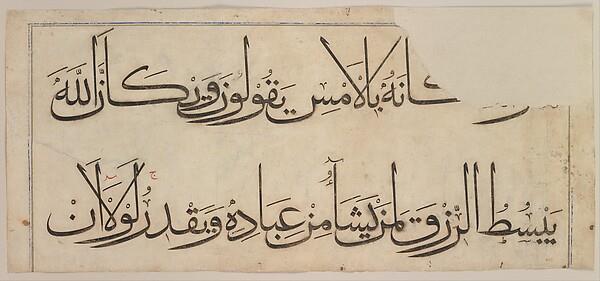 كَانَهُ بِالْاَمْسِ يَقُولُونَ وَيْكَاَنَّ اللَّهَ
يَبْسُطُ الرِّزْقَ لِمَنْ يَشَآءُ مِنْ عِبَادِهِ وَيَقْدِرُ ۚ لَوْلَا اَنْ